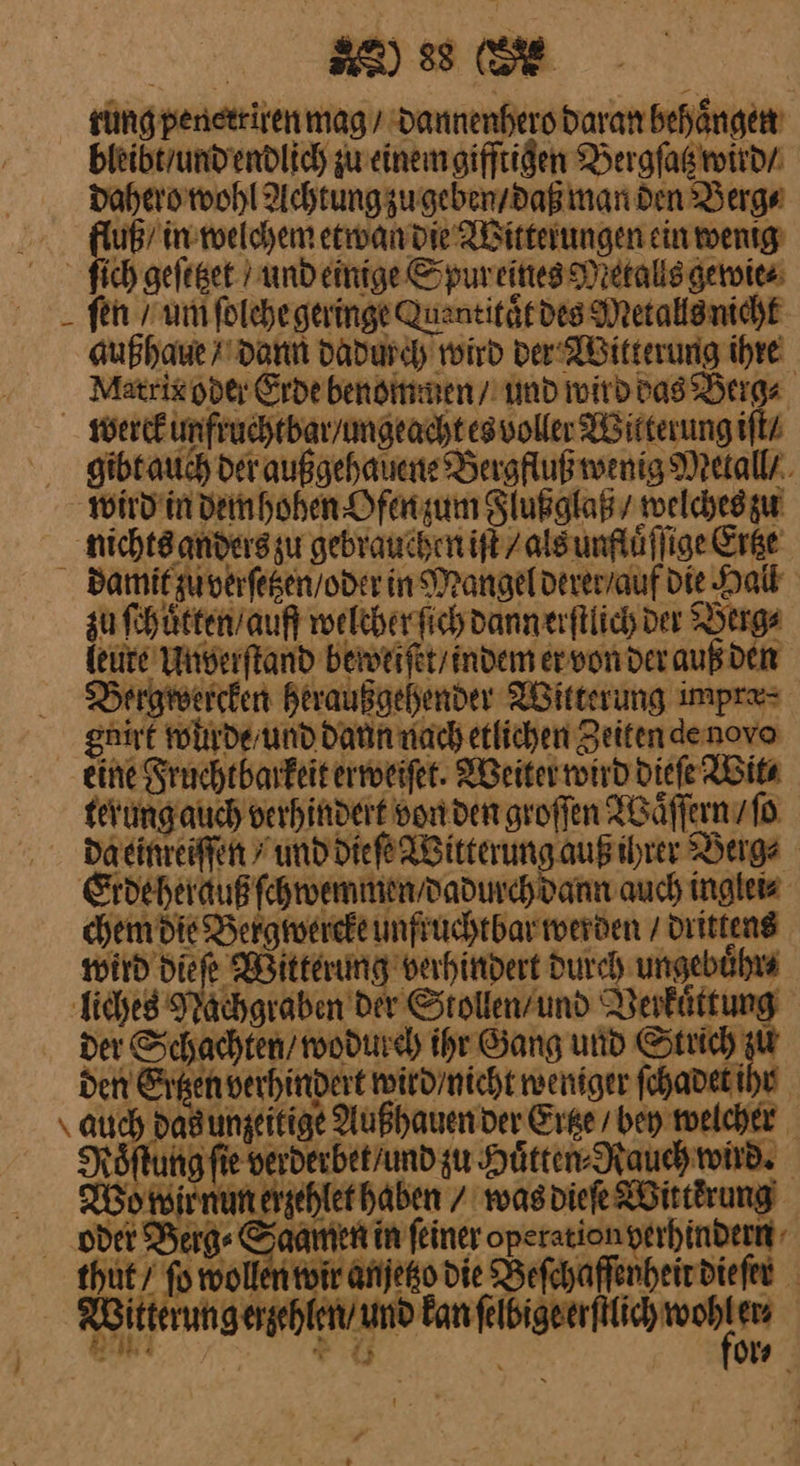 ) 88 (
rung penetriren mag / dannenhero daran behaͤngen
bleibt / und endlich zu einem gifftigen Bergſatz wird /
dahero wohl Achtung zu geben / daß man den Berg⸗
fluß / in welchem etwan die Witterungen ein wenig
ſich geſetzet / und einige Spur eines Metalls gewie⸗
ſen / um ſolche geringe Quantitaͤt des Metalls nicht
außhaue / dann dadurch wird der Witterung ihre
Matrix oder Erde benommen / und wird das Berg⸗
werck unfruchtbar / ungeacht es voller Witterung iſt /
gibt auch der außgehauene Bergfluß wenig Metall /
wird in dem hohen Ofen zum Flußglaß / welches zu
nichts anders zu gebrauchen iſt / als unfluͤſſige Ertze
damit zu verſetzen / oder in Mangel derer / auf die Hall
zu ſchuͤtten / auff welcher ſich dann erſtlich der Berg⸗
leute Unverſtand beweiſet / indem er von der auß den
Bergwercken heraußgehender Witterung impræ-
gnirt wuͤrde / und dann nach etlichen Zeiten de novo
eine Fruchtbarkeit erweiſet. Weiter wird dieſe Wit⸗
terung auch verhindert von den groſſen Waͤſſern / ſo
da einreiſſen / und dieſe Witterung auß ihrer Berg⸗
Erde herauß ſchwemmen / dadurch dann auch inglei⸗
chem die Bergwercke unfruchtbar werden / drittens
wird dieſe Witterung verhindert durch ungebuͤhr⸗
liches Nachgraben der Stollen / und Verkuͤttung
der Schachten / wodurch ihr Gang und Strich zu
den Ertzen verhindert wird / nicht weniger ſchadet ihr
auch das unzeitige Außhauen der Ertze / bey welcher
Roͤſtung ſie verderbet / und zu Huͤtten⸗Rauch wird.
Wo wir nun erzehlet haben / was dieſe Witterung
oder Berg⸗Saamen in ſeiner operation verhindern
thut / ſo wollen wir anjetzo die Beſchaffenheit dieſer
Witterung erzehlen / und kan ſelbige erſtlich wohl er⸗
for⸗